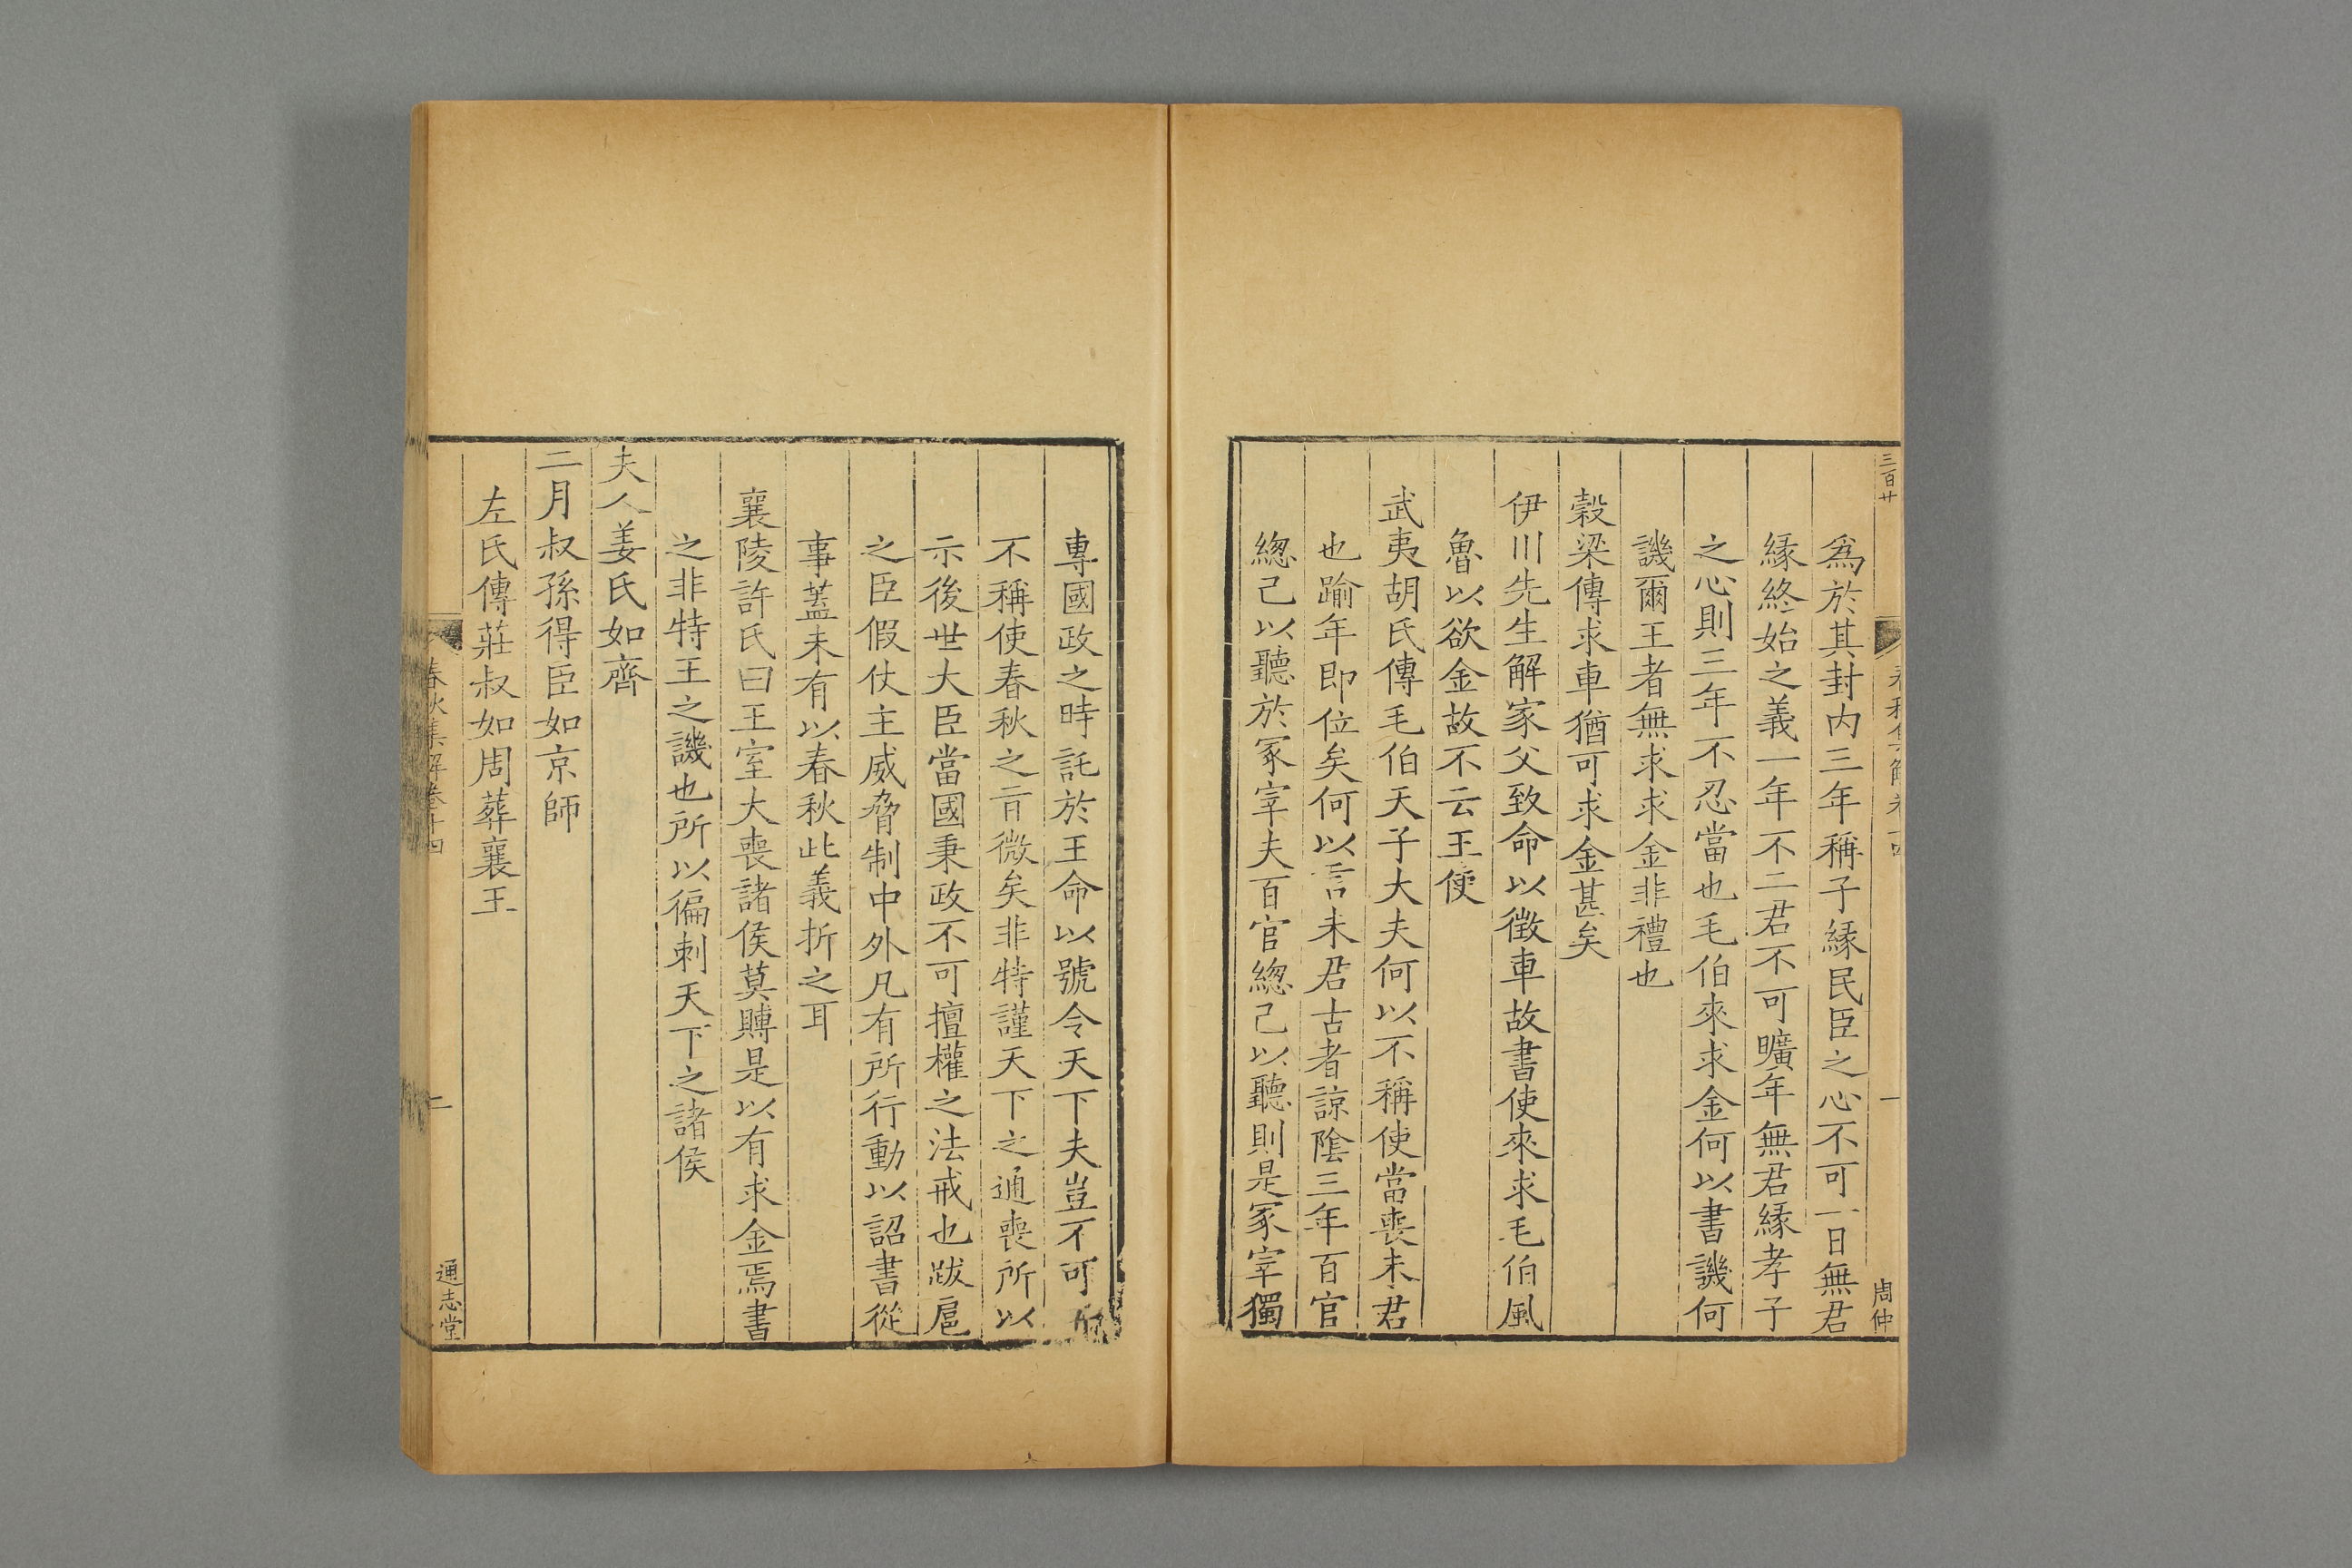 三百廿
春秋集解卷十四
一
周仲
爲於其封内三年稱子緣民臣之心不可一日無君
緣終始之義一年不二君不可曠年無君緣孝子
之心則三年不忍當也毛伯來求金何以書譏何
譏爾王者無求求金非禮也
穀梁傳求車猶可求金甚矣
伊川先生解家父致命以徵車故書使來求毛伯風
魯以欲金故不云王使
武夷胡氏傳毛伯天子大夫何以不稱使當喪未君
也踰年即位矣何以言未君古者諒陰三年百官
緫己以聽於冢宰夫百官緫己以聽則是冢宰獨
專國政之時託於王命以號令天下夫豈不可
不稱使春秋之㫖微矣非特謹天下之通喪所以
示後世大臣當國秉政不可擅權之法戒也跋扈
之臣假仗主威脅制中外凡有所行動以詔書從
事蓋未有以春秋此義折之耳
襄陵許氏曰王室大喪諸侯莫賻是以有求金焉書
之非特王之譏也所以徧刺天下之諸侯
夫人姜氏如齊
二月叔孫得臣如京師
左氏傳莊叔如周葬襄王
春秋集解卷十四
二
通志堂